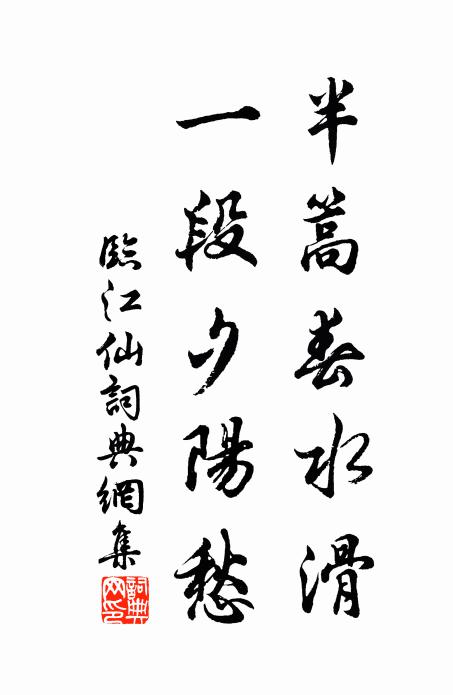 半篙春水滑
一段夕陽愁
臨江仙詞典網集
詞典網印